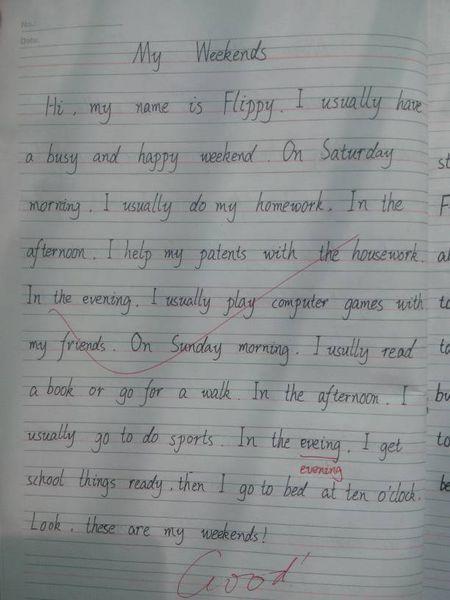 No.:
Date:
My Weekends
Hi, my name is Flippy. I usually have
a busy and happy weekend. On Saturday
morning, I usually do my homework. In the
afternoon, I help my patents with the housework.
In the evening, I usually play computer games with
my friends. On Sunday morning, I usully read
a book or go for a walk. In the afternoon, I
usually go to do sports. In the eveing, I get
evening
school things ready, then I go to bed at ten o'clock.
Look, these are my weekends!
Good
st
F
al
to
to
bu
to
be